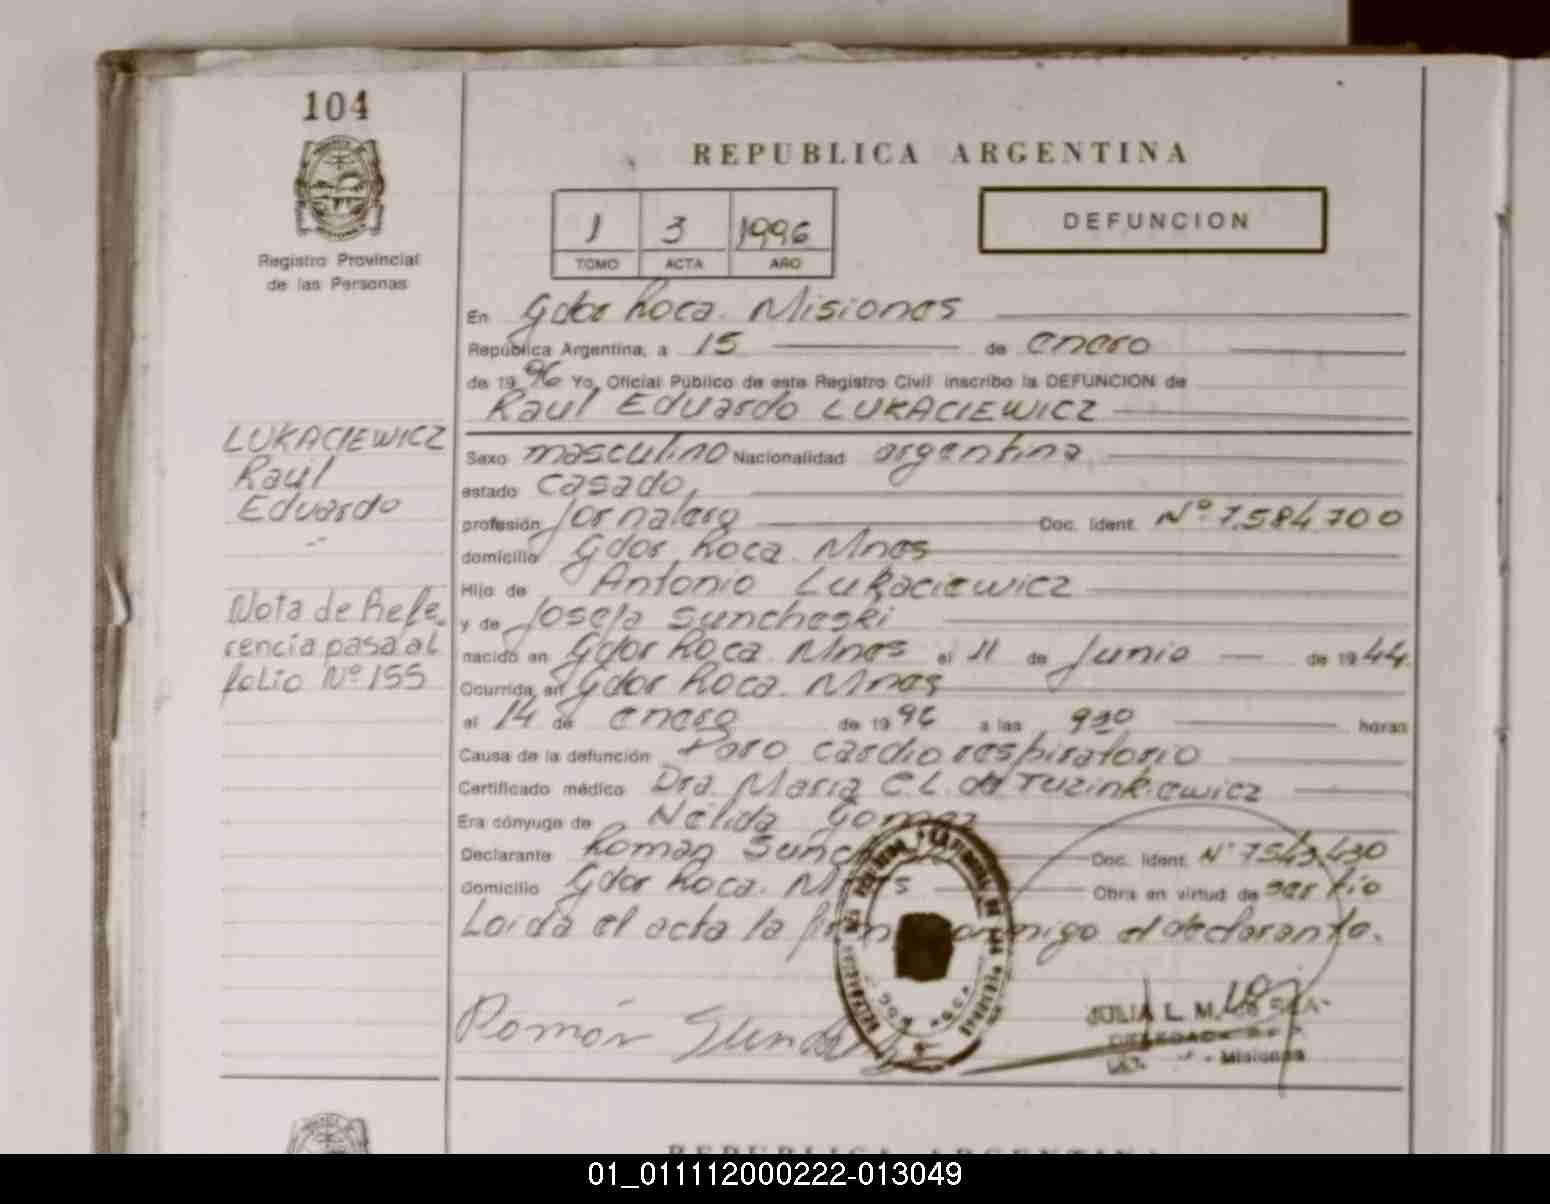 104
Registro Provincial
de las Personas
REPUBLICA ARGENTINA
1 3 1996
TOMO ACTA AÑO
DEFUNCION
En Gdor Roca. Misiones
República Argentina, a 15 de enero
de 1996 Yo, Oficial Público de este Registro Civil inscribo la DEFUNCION de
Raul Eduardo LUKACIEWICZ
LUKACIEWICZ
Raúl
Eduardo
Nota de Refe-
rencia pasa al
folio Nº 155
Sexo masculino Nacionalidad argentina
estado casado,
profesión Jornalero Doc. Ident. Nº 7.584.700
domicilio Gdor Roca. Mnes
Hijo de Antonio Lukaciewicz
y de Josefa Suncheski
nacido en Gdor Roca. Mnes el 11 de Junio de 1944.
Ocurrida en Gdor Roca. Mnes
el 14 de enero de 1996 a las 930 horas
Causa de la defunción Paro cardio respiratorio
Certificado médico Dra. Maria C.L. de Tuzinkiewicz
Era cónyuge de Nélida Gomez
Declarante Roman Doc. Ident. Nº 7.543.430
domicilio Gdor Roca. Mnes Obra en virtud de ser tío
Leída el acta la firma conmigo el declarante.
Román
JULIA L. M.
DELEGADA
Misiones
REPUBLICA ARGENTINA
01_011112000222-013049